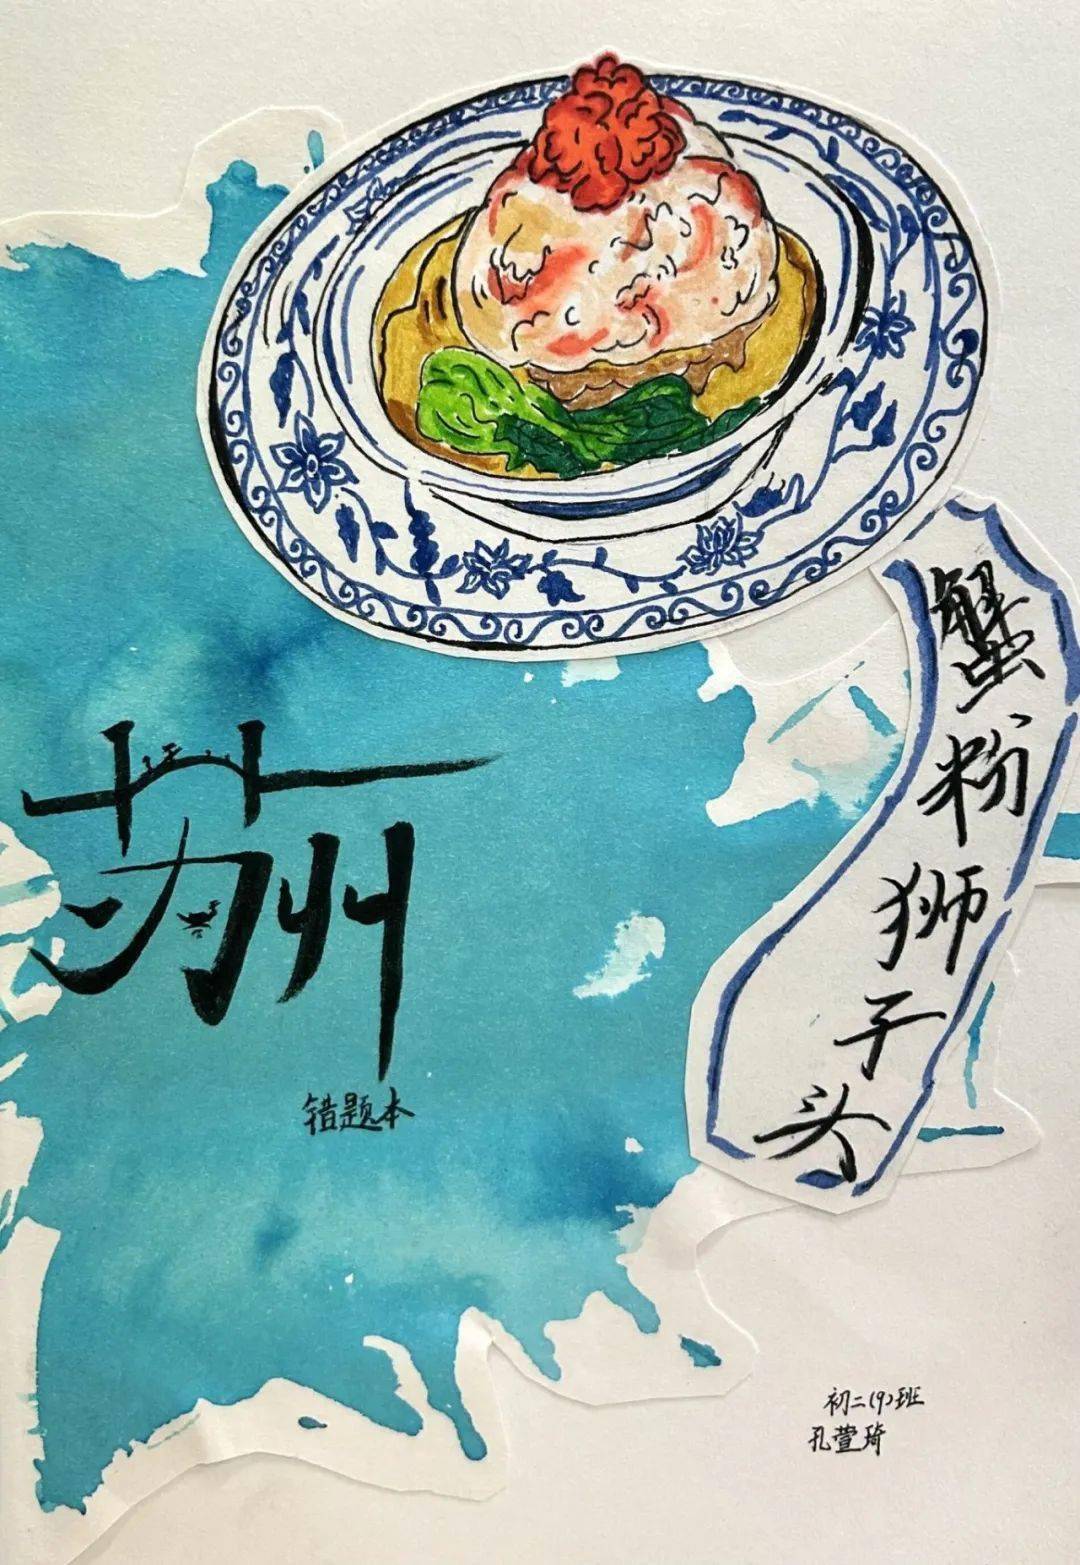 蟹粉狮子头
苏州
错题本
初二(9)班
孔萱琦